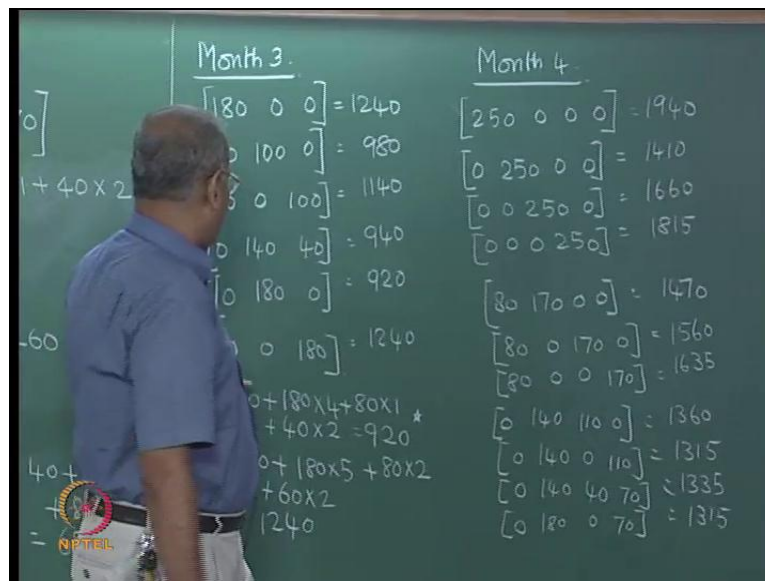 0]
1 + 40 × 2
60
40 +
+ 8
=
Month 3.
[180 0 0] = 1240
0 100 0] = 980
0 100] = 1140
0 140 40] = 940
[0 180 0] = 920
0 180] = 1240
0 + 180 × 4 + 80 × 1 *
+ 40 × 2 = 920
0 + 180 × 5 + 80 × 2
+ 60 × 2
1240
Month 4.
[250 0 0 0] = 1940
[0 250 0 0] = 1410
[0 0 250 0] = 1660
[0 0 0 250] = 1815
[80 170 0 0] = 1470
[80 0 170 0] = 1560
[80 0 0 170] = 1635
[0 140 110 0] = 1360
[0 140 0 110] = 1315
[0 140 40 70] = 1335
[0 180 0 70] = 1315
NPTEL